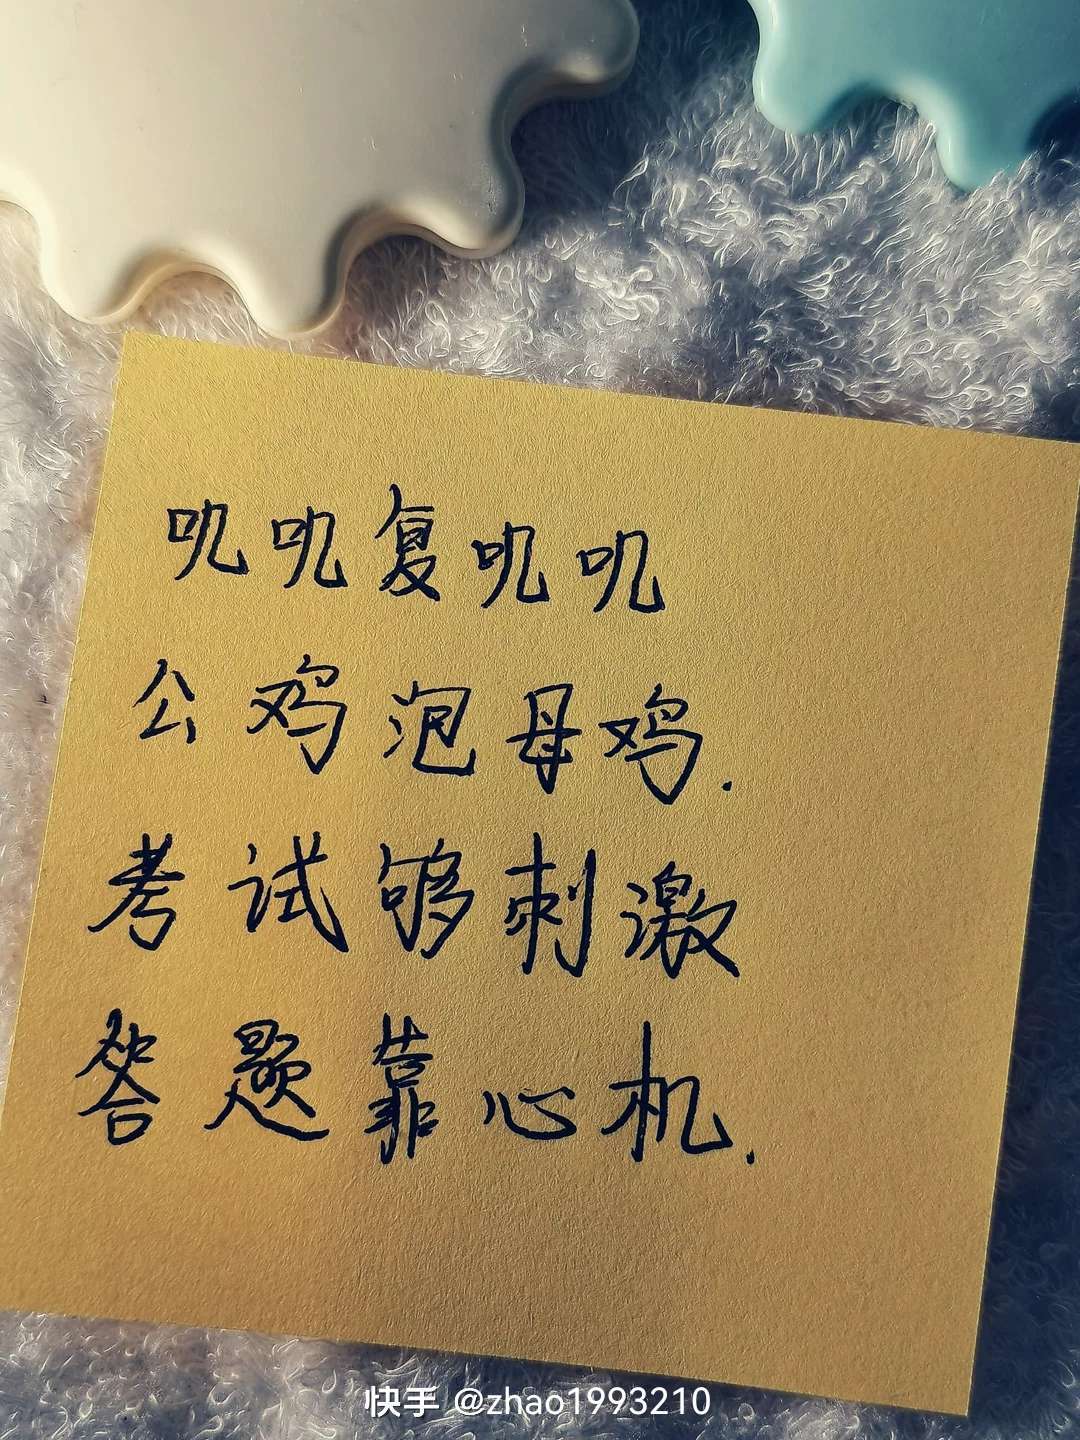 叽叽复叽叽
公鸡泡母鸡.
考试够刺激
答题靠心机.
快手 @zhao1993210